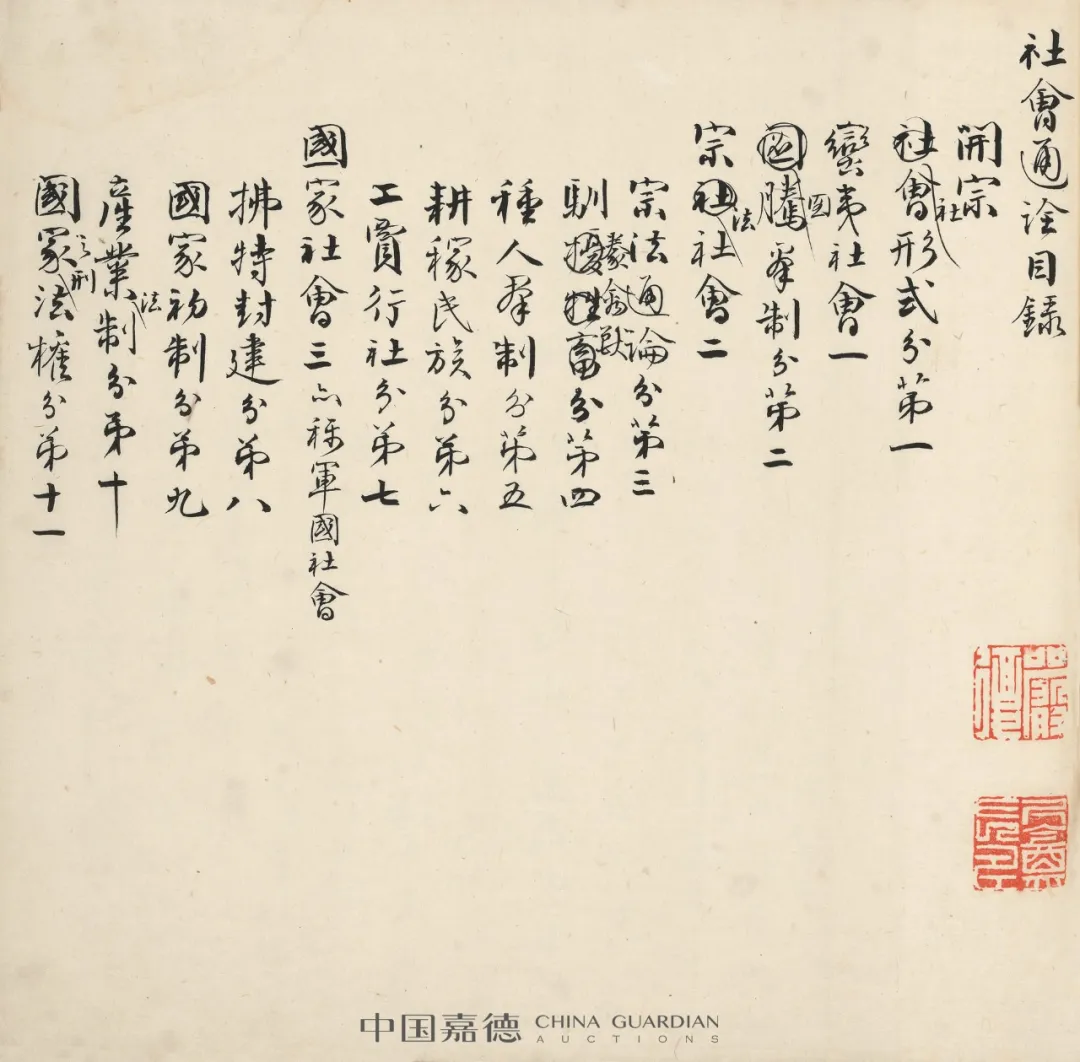 社會通詮目錄
開宗
社會形式分第一
社
蠻夷社會一
騰羣制分第二
圖
宗社會二
法
宗法通論分第三
馴擾牲畜分第四
禽獸
種人羣制分第五
耕稼民族分第六
工賈行社分第七
國家社會三 亦称軍國社會
拂特封建分第八
國家初制分第九
法
產業制分第十
之刑
國家法權分第十一
嚴復
中国嘉德 CHINA GUARDIAN
AUCTIONS